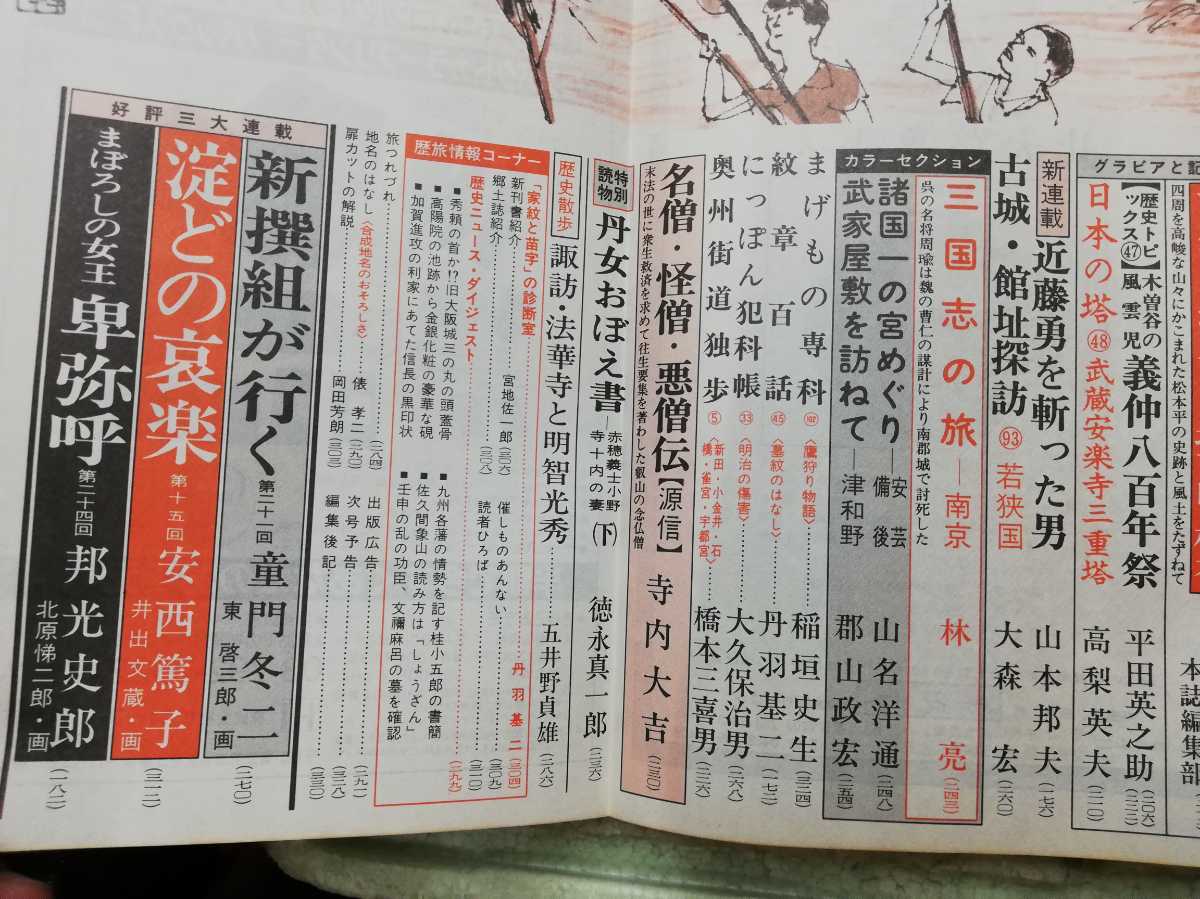 四周を高峻な山々にかこまれた松本平の史跡と風土をたずねて
本誌編集部
グラビアと記
【歴史トピックス㊼】
木曽谷の風雲児
義仲八百年祭
平田英之助
(二〇六)
日本の塔
㊽
武蔵安楽寺三重塔
高梨英夫
(二一〇)
新連載
近藤勇を斬った男
山本邦夫
(一七六)
古城・館址探訪
93
若狭国
大森宏
(二六〇)
カラーセクション
三国志の旅―南京
林亮
(二四三)
呉の名将周瑜は魏の曹仁の謀計により南郡城で討死した
諸国一の宮めぐり―安芸 備後
山名洋通
(二四八)
武家屋敷を訪ねて
津和野
郡山政宏
(二五四)
まげもの専科
102
〈鷹狩り物語〉
稲垣史生
(二三四)
紋章百話
㊺
〈墓紋のはなし〉
丹羽基二
(一七二)
にっぽん犯科帳
㉝
〈明治の傷害〉
大久保治男
(二六八)
奥州街道独歩
⑤
〈新田・小金井・石橋・雀宮・宇都宮〉
橋本三喜男
(二三六)
名僧・怪僧・悪僧伝【源信】
寺内大吉
(二三〇)
末法の世に衆生救済を求めて往生要集を著わした叡山の念仏僧
特別読物
丹女おぼえ書
―赤穂義士小野寺十内の妻
(下)
徳永真一郎
(二三六)
歴史散歩
諏訪・法華寺と明智光秀
五井野貞雄
(二八六)
歴旅情報コーナー
「家紋と苗字」の診断室
丹羽基二
(三〇四)
新刊書紹介
宮地佐一郎
(三〇六)
催しものあんない
(三〇九)
郷土誌紹介
(三〇八)
読者ひろば
(三一〇)
歴史ニュース・ダイジェスト
(二九九)
■秀頼の首か!?旧大阪城三の丸の頭蓋骨
■高陽院の池跡から金銀化粧の豪華な硯
■加賀進攻の利家にあてた信長の黒印状
■九州各藩の情勢を記す桂小五郎の書簡
■佐久間象山の読み方は「しょうざん」
■壬申の乱の功臣、文禰麻呂の墓を確認
旅つれづれ
(二八四)
出版広告
(二九二)
地名のはなし
〈合成地名のおそろしさ〉
俵孝二
(二九〇)
次号予告
(三二八)
扉カットの解説
岡田芳朗
(三〇三)
編集後記
(三三〇)
好評三大連載
新撰組が行く
第二十一回
童門冬二
東啓三郎・画
(二七〇)
淀どの哀楽
第十五回
安西篤子
井出文蔵・画
(三一二)
まぼろしの女王
卑弥呼
第二十四回
邦光史郎
北原悌二郎・画
(一八二)